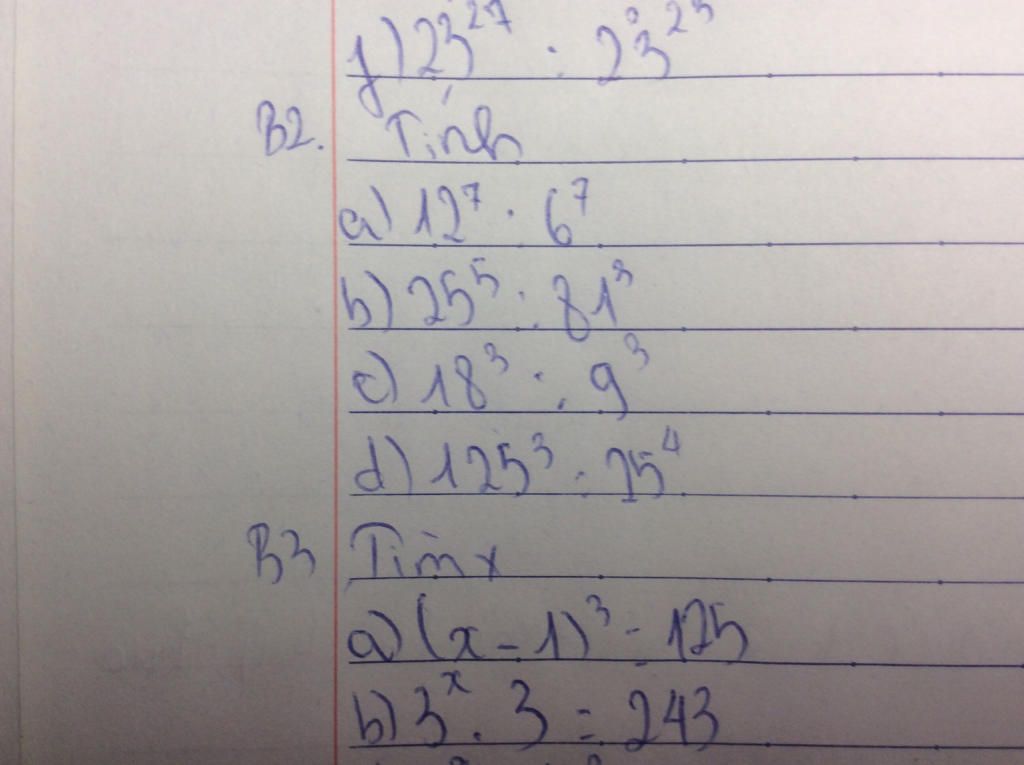 j) 23²⁷ : 23²³
B2. Tính
a) 12⁷ : 6⁷
b) 25⁵ : 81³
c) 18³ : 9³
d) 125³ : 25⁴
B3 Tìm x
a) (x - 1)³ = 125
b) 3ˣ . 3 = 243